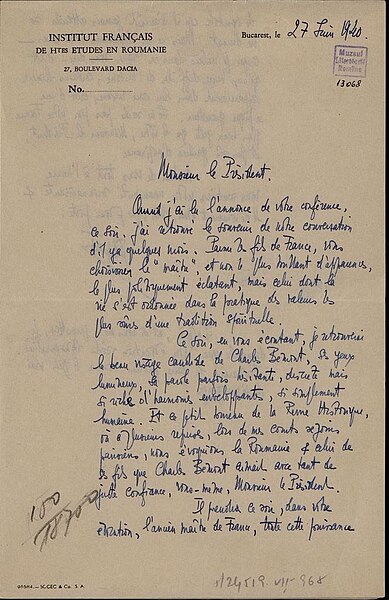 INSTITUT FRANÇAIS
DE HTES ETUDES EN ROUMANIE
27, BOULEVARD DACIA
No.
Bucarest, le 27 Juin 1940.
Muzeul
Literaturii
Române
13068
Monsieur le Président.
Quand j'ai lu l'annonce de votre conférence,
ce soir, j'ai retrouvé le souvenir de notre conversation
d'il y a quelques mois. Parmi les fils de France, vous
choisissez le "maître", et non le plus brillant d'apparences,
le plus politiquement éclatant, mais celui dont la
vie s'est ordonnée dans la pratique des valeurs les
plus sûres d'une tradition spirituelle.
Ce soir, en vous écoutant, je retrouvais
le beau visage de Charles Bémont, ses yeux
lumineux, sa parole parfois hésitante, discrète mais
si riche d'harmonies enveloppantes, si simplement
humaine. Et ce petit bureau de la Revue Historique,
où à plusieurs reprises, lors de mes courts séjours
parisiens, nous évoquions la Roumanie et celui de
ses fils que Charles Bémont aimait avec tant de
juste confiance, vous-même, Monsieur le Président.
Il prendra ce soir, dans votre
évocation, l'ancien maître de France, toute cette puissance
100